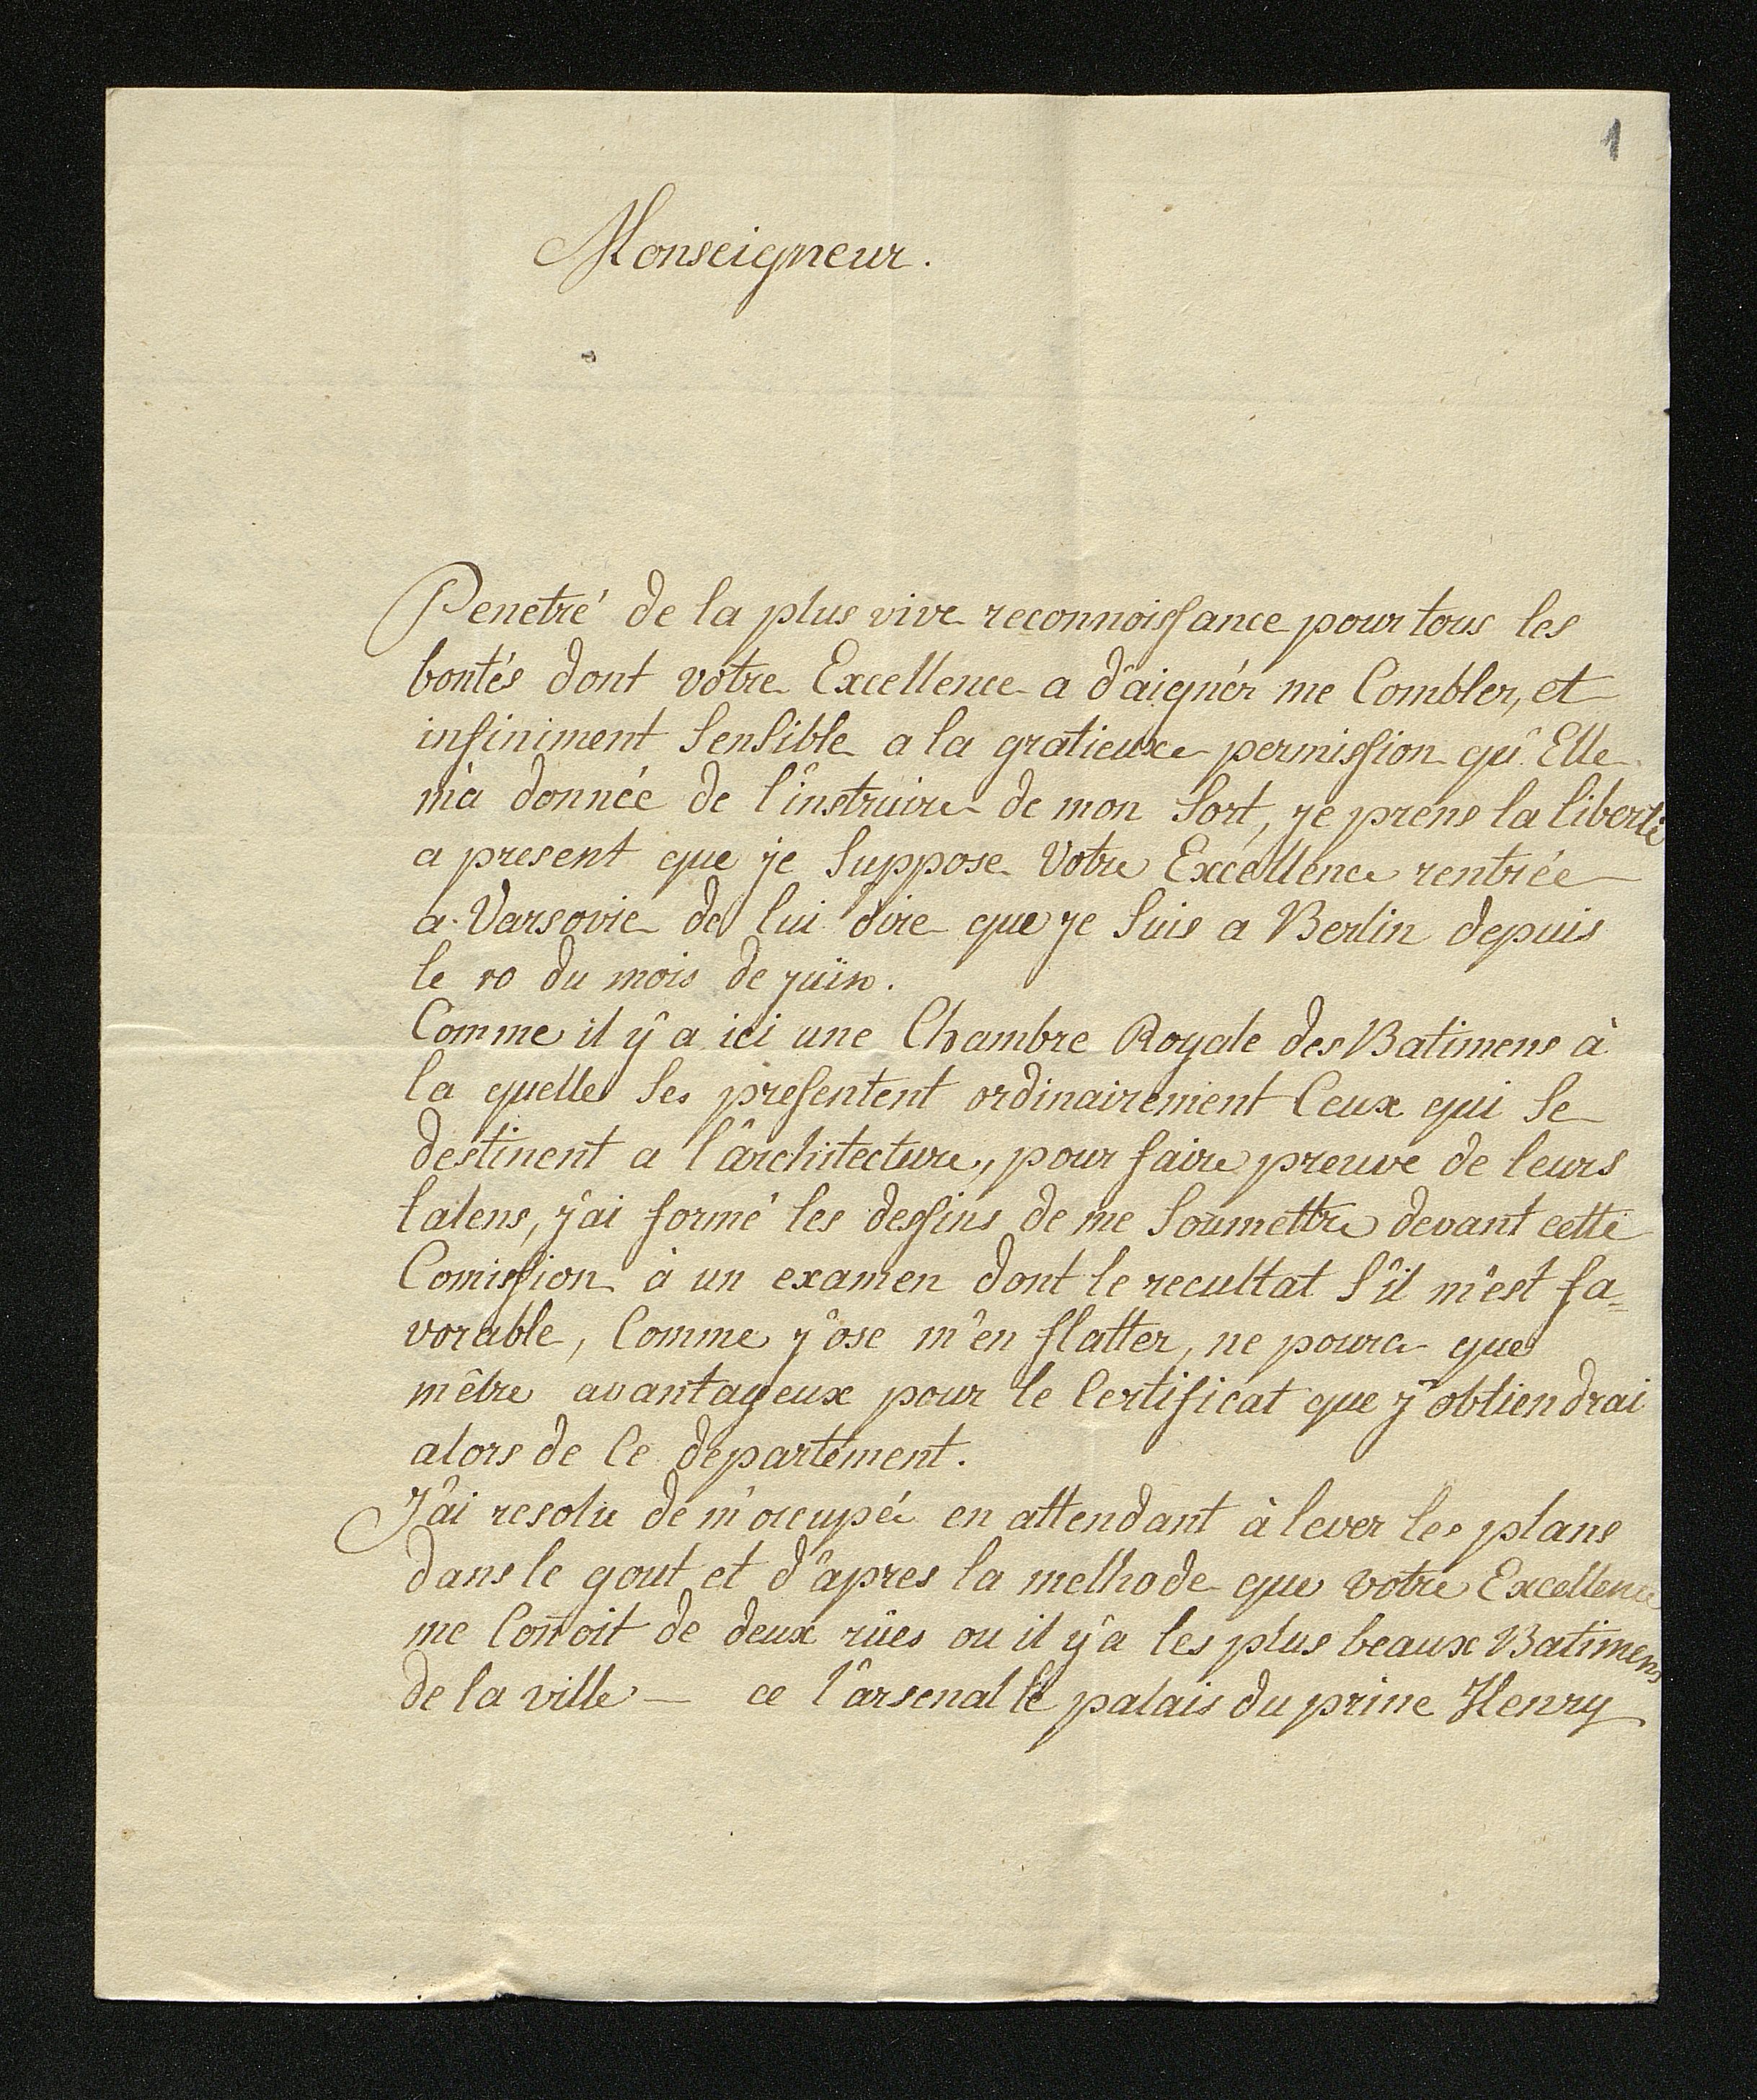 1
Monseigneur.
Penetré de la plus vive reconnoissance pour tous les
bontés dont votre Excellence a d'aignér me Combler, et
infiniment Sensible a la gratieuse permission qu'Elle
m'a donnée de l'instruire de mon Sort, je prens la liberté
a present que je Suppose Votre Excellence rentrée
a Varsovie de lui dire que je Suis a Berlin depuis
le 10 du mois de juin.
Comme il y a ici une Chambre Royale des Batimens à
la quelle Ses presentent ordinairement Ceux qui Se
destinent a l'architecture, pour faire preuve de leurs
talens, j'ai formé les dessins de me Soumettre devant cette
Comission à un examen dont le recultat S'il m'est fa=
vorable, Comme j'ose m'en flatter, ne poura que
m'être avantageux pour le Certificat que j'obtiendrai
alors de Ce departement.
J'ai resolu de m'occupé en attendant à lever les plans
dans le gout et d'apres la methode que votre Excellence
me Connoit de deux rües ou il y a les plus beaux Batimens
de la ville — ce l'arsenal le palais du prine Henry